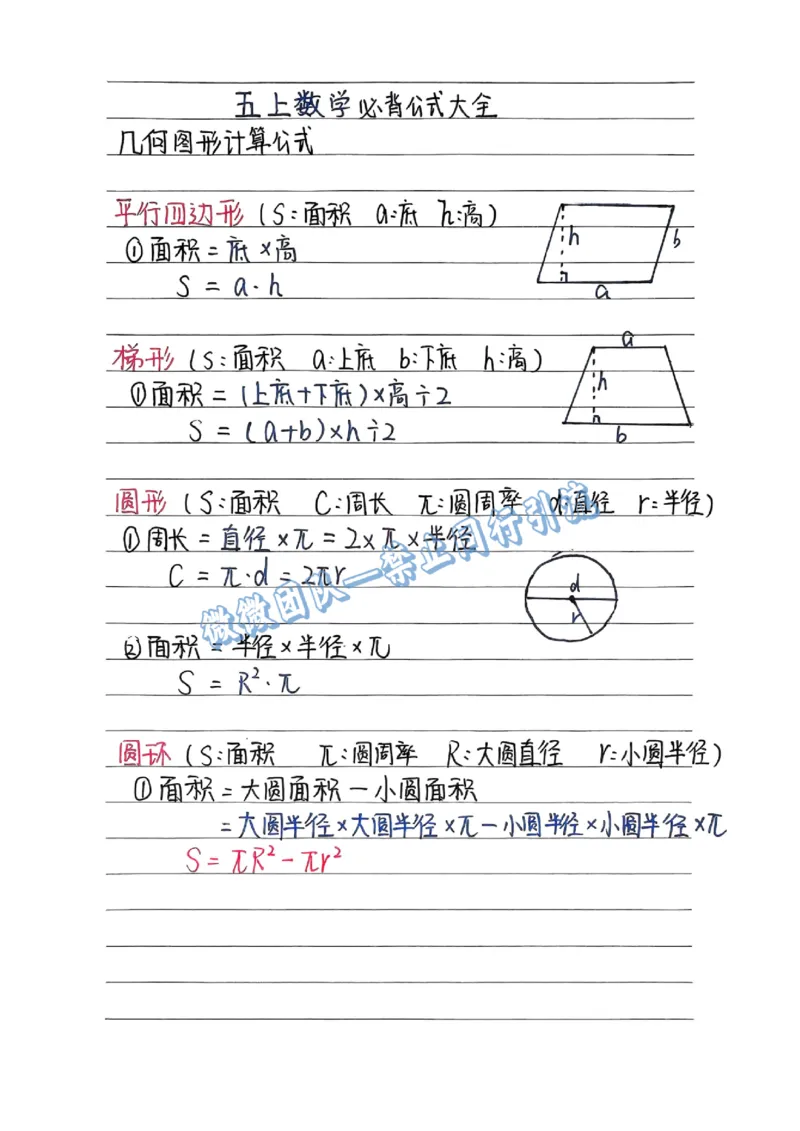 五上数学必背公式大全
几何图形计算公式
平行四边形(S:面积 a:底 h:高)
①面积=底×高
S=a·h
h
b
a
梯形(S:面积 a:上底 b:下底 h:高)
①面积=(上底+下底)×高÷2
S=(a+b)×h÷2
a
h
b
圆形(S:面积 C:周长 π:圆周率 d:直径 r=半径)
①周长=直径×π=2×π×半径
C=π·d=2πr
d
r
②面积=半径×半径×π
S=R²·π
微微团队—禁止同行引流
圆环(S:面积 π:圆周率 R:大圆直径 r:小圆半径)
①面积=大圆面积-小圆面积
=大圆半径×大圆半径×π-小圆半径×小圆半径×π
S=πR²-πr²